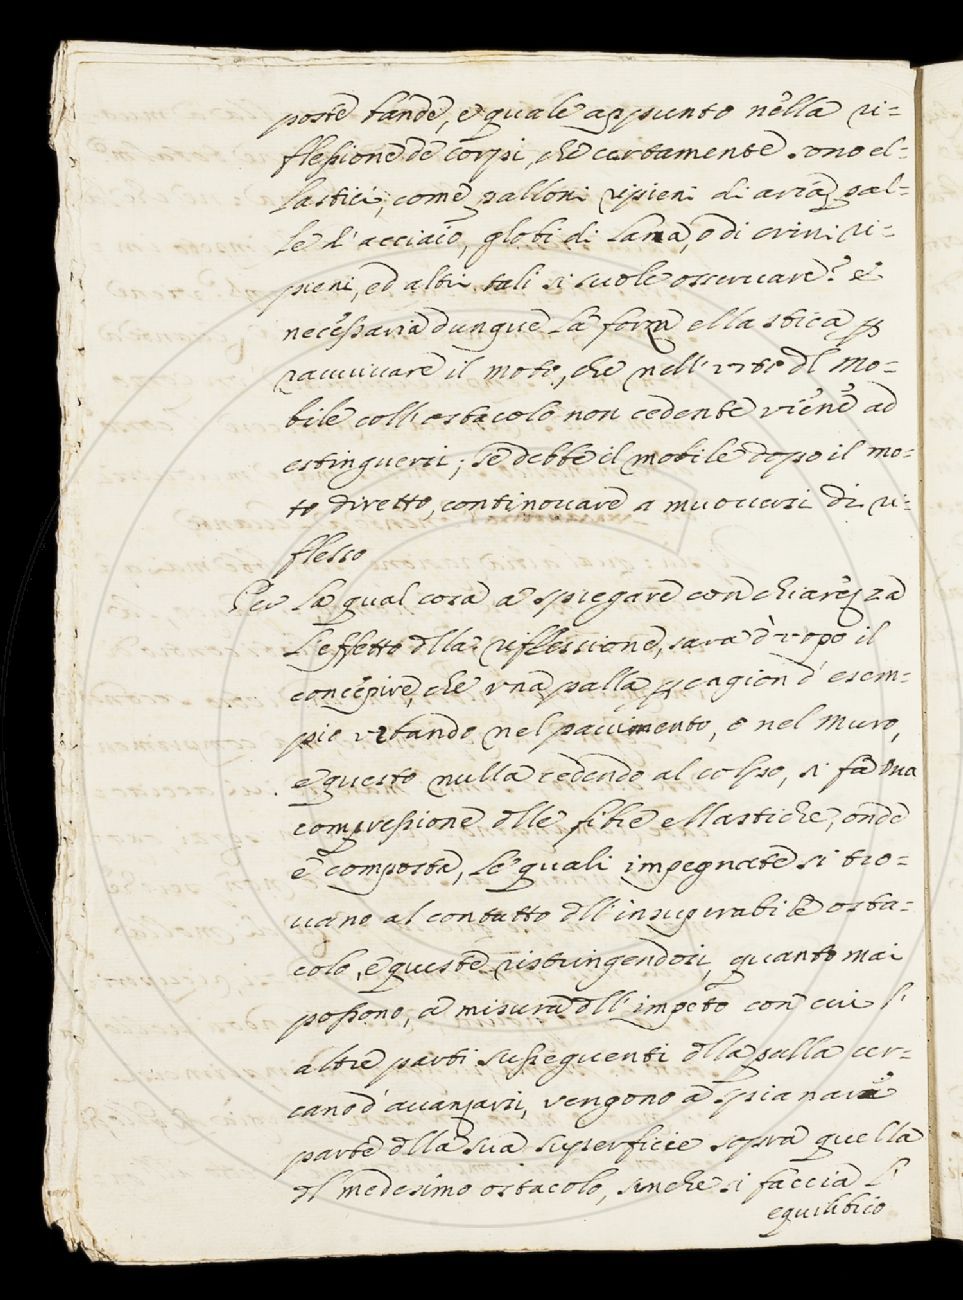 poste bande, e quale appunto nella ri=
flessione de corpi, che certamente sono el=
lastici, come palloni ripieni di aria, pal=
le d'acciaio, globi di lana, o di crini ri=
pieni, ed altri tali si suole osservare? è
necessaria dunque la forza ellastica p
ravvivare il moto, che nell'urto dl mo=
bile coll'ostacolo non cedente viene ad
estinguersi; se debbe il mobile dopo il mo=
to diretto, continovare a muoversi di ri=
flesso
Per la qual cosa a spiegare con chiarezza
l'effetto dlla riflessione, sara d'vopo il
concepire, che vna palla p cagion d'esem=
pio vrtando nel pavimento, o nel muro,
e questo nulla cedendo al colpo, si fa vna
compressione dlle fibre ellastiche, onde
è composta, le quali impegnate si tro=
uano al contatto dll'insuperabile osta=
colo, e queste ristringendosi, quanto mai
possono, a misura dll'impeto con cui l'
altre parti susseguenti dlla palla cer=
cano d'avanzarsi, vengono a spianare
parte dlla sua superficie sopra quella
dl medesimo ostacolo, sinche si faccia l'
equilibrio